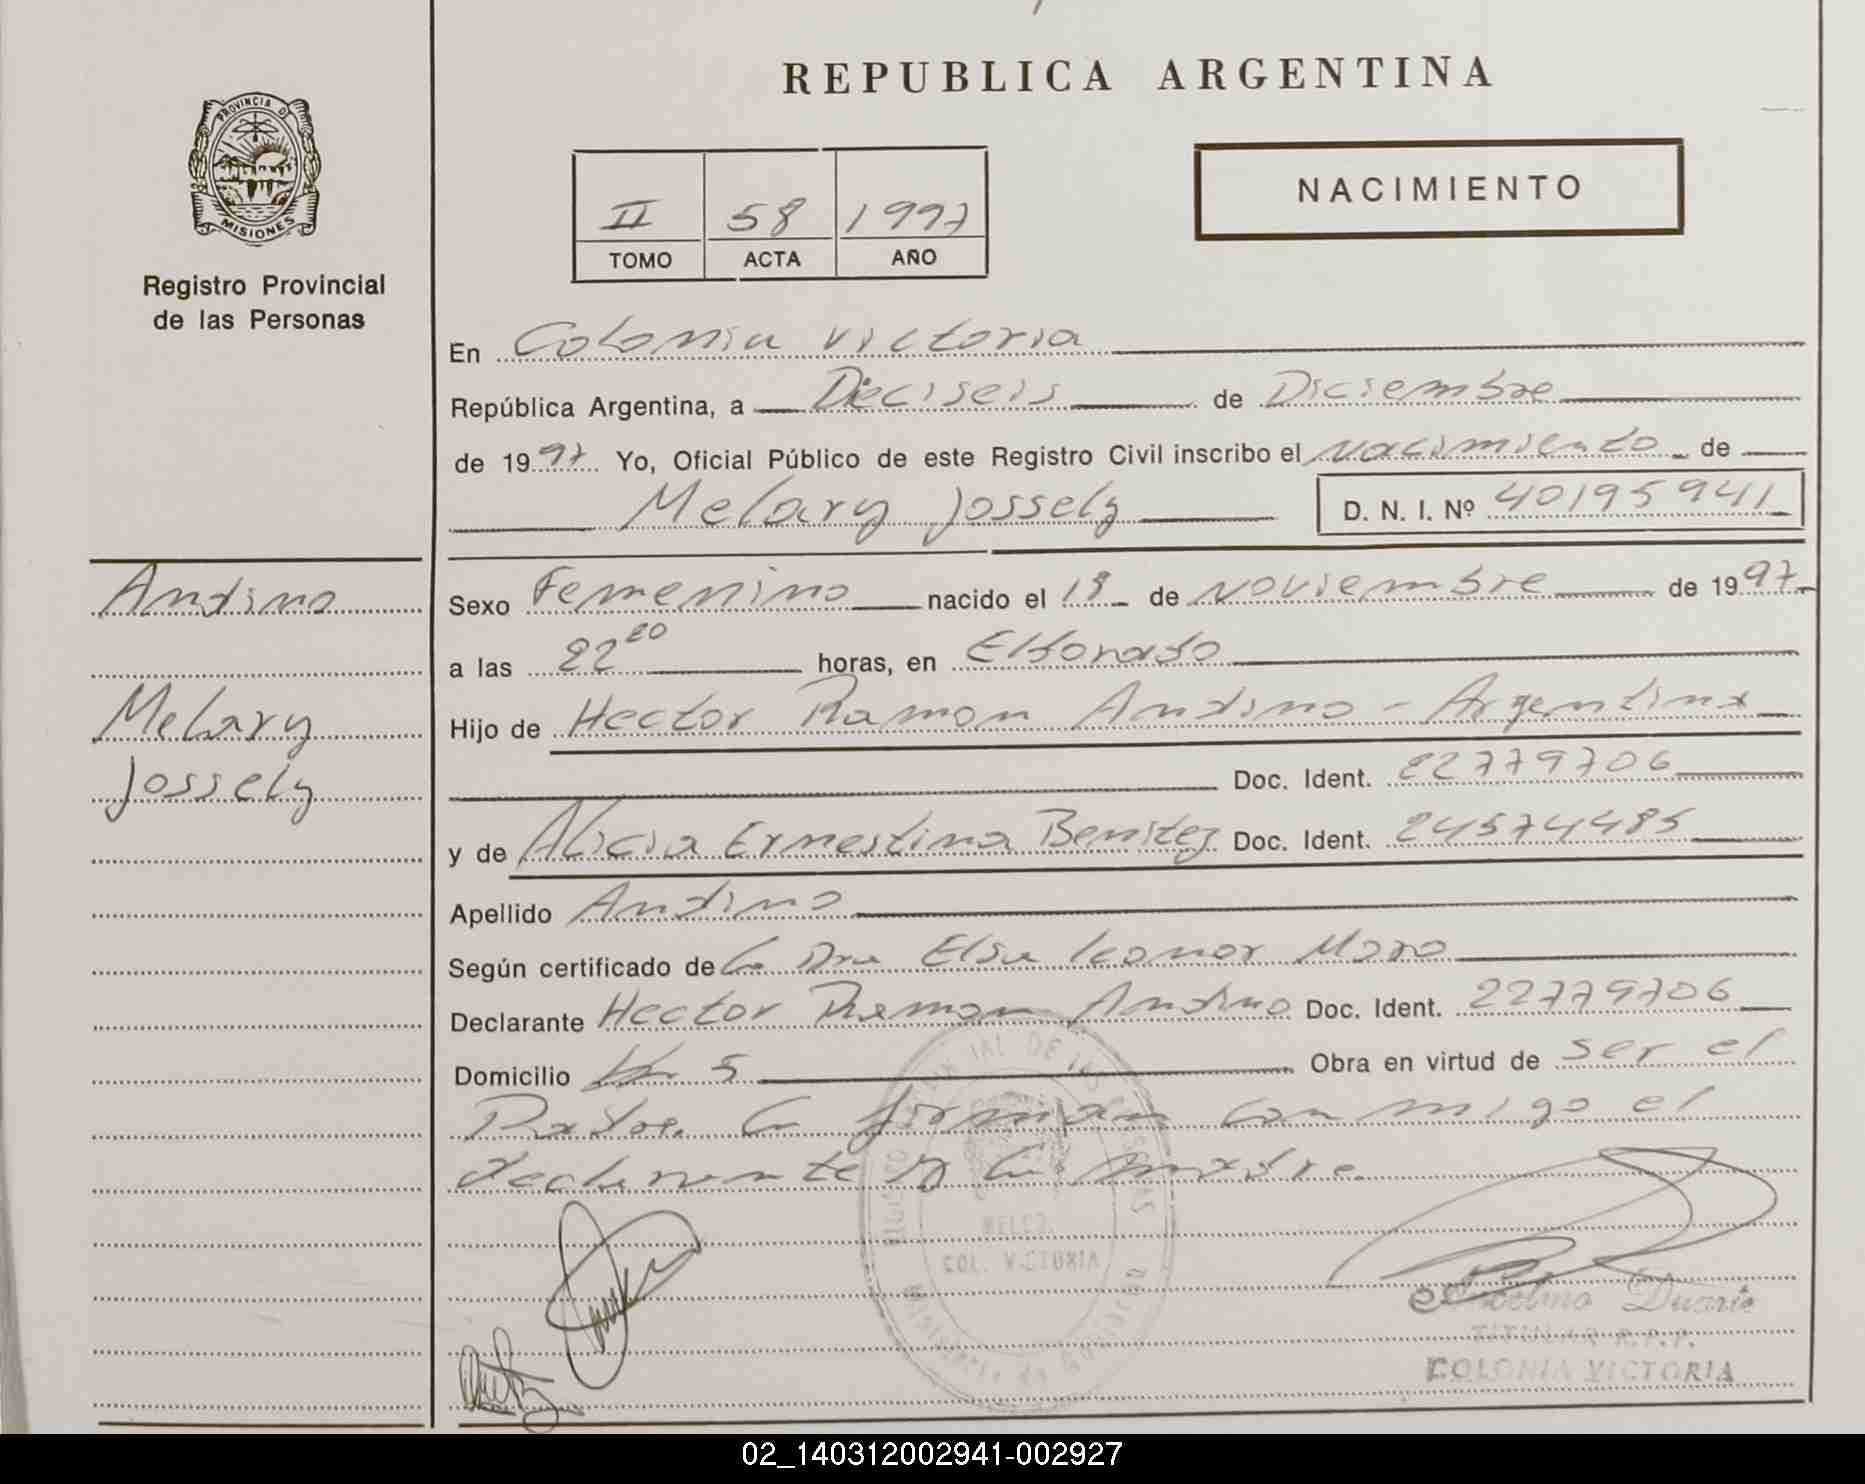 REPUBLICA ARGENTINA
PROVINCIA DE
MISIONES
Registro Provincial
de las Personas
II 58 1997
TOMO ACTA AÑO
NACIMIENTO
En Colonia Victoria
República Argentina, a Dieciseis de Diciembre
de 1997 Yo, Oficial Público de este Registro Civil inscribo el nacimiento de
Melary Jossely D. N. I. Nº 40195941
Andino
Melary
Jossely
Sexo Femenino nacido el 18 de Noviembre de 1997
a las 22 20 horas, en Eldorado
Hijo de Hector Ramon Andino - Argentina
Doc. Ident. 22779706
y de Alicia Ernestina Benitez Doc. Ident. 24574485
Apellido Andino
Según certificado de la Dra Elsa Leonor Moro
Declarante Hector Ramon Andino Doc. Ident. 22779706
Domicilio Km 5 Obra en virtud de ser el
Padre. La firman con migo el
declarante y la madre.
COL. VICTORIA
Anselmo Duarte
TITULAR R.P.P.
COLONIA VICTORIA
02_140312002941-002927